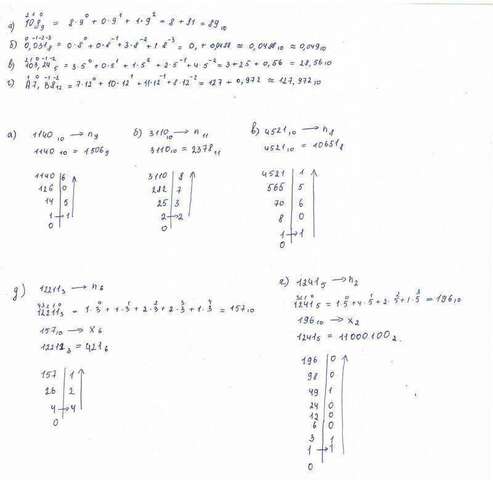 а) 108₉ = 8·9⁰ + 0·9¹ + 1·9² = 8 + 81 = 89₁₀
б) 0,031₈ = 0·8⁰ + 0·8⁻¹ + 3·8⁻² + 1·8⁻³ = 0, + 0,0488 ≈ 0,0488₁₀ ≈ 0,049₁₀
в) 103,24₅ = 3·5⁰ + 0·5¹ + 1·5² + 2·5⁻¹ + 4·5⁻² = 3 + 25 + 0,56 = 28,56₁₀
г) A7,B8₁₂ = 7·12⁰ + 10·12¹ + 11·12⁻¹ + 8·12⁻² = 127 + 0,972 = 127,972₁₀
а) 1140₁₀ → n₉
1140₁₀ = 1506₉
1140 6
126 0
14 5
1 → 1
0
б) 3110₁₀ → n₁₁
3110₁₀ = 2378₁₁
3110 8
282 7
25 3
2 → 2
0
в) 4521₁₀ → n₈
4521₁₀ = 10651₈
4521 1
565 5
70 6
8 0
1 → 1
0
д) 12211₃ → n₆
12211₃ = 1·3⁰ + 1·3¹ + 2·3² + 2·3³ + 1·3⁴ = 157₁₀
157₁₀ → x₆
= 421₆
157 1
26 2
4 → 4
0
1241₅ → n₂
1241₅ = 1·5⁰ + 4·5¹ + 2·5² + 1·5³ = 196₁₀
196₁₀ → x₂
1241₅ = 11000100₂
196 0
98 0
49 1
24 0
12 0
6 0
3 1
1 → 1
0